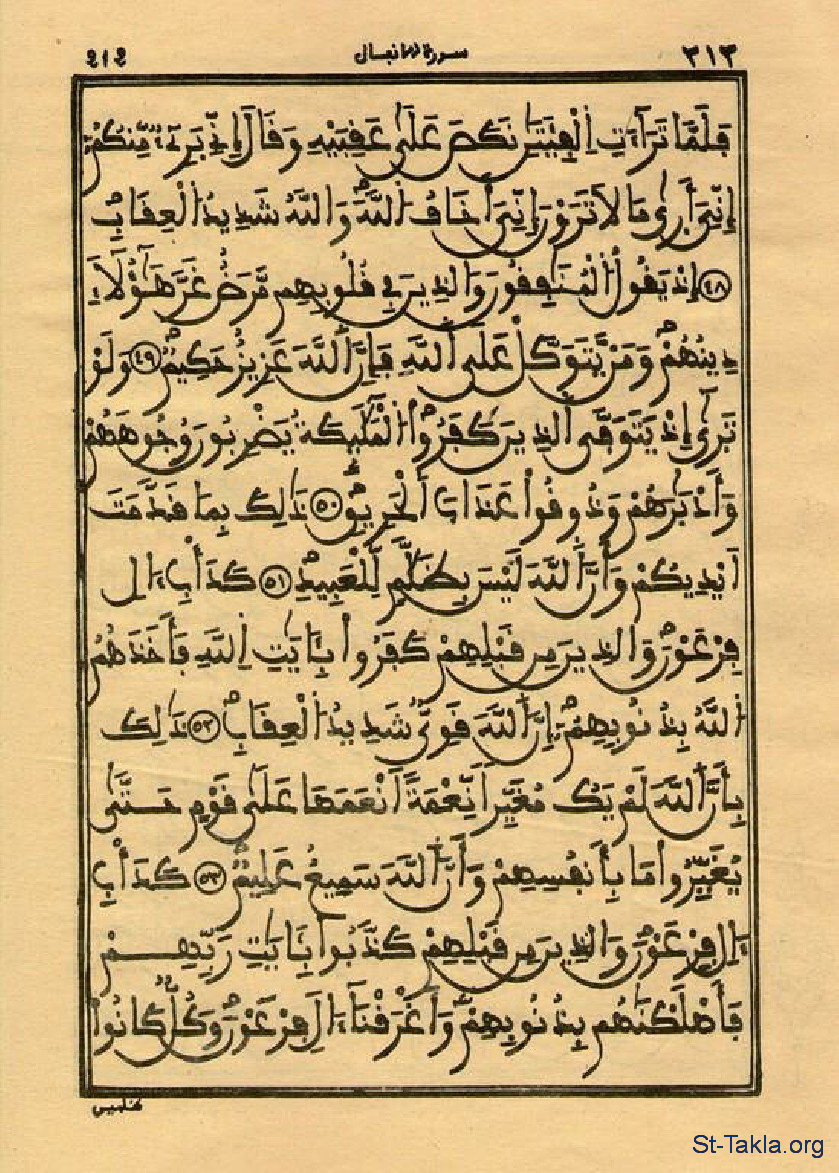 ٣١٣ سورة الانفال 212
فلما تراءت الفئتن نكص على عقبيه وقال إني برىء منكم
إني أرى ما لا ترون إني أخاف الله والله شديد العقاب
(٤٨) إذ يقول المنفقون والذين في قلوبهم مرض غر هؤلاء
دينهم ومن يتوكل على الله فإن الله عزيز حكيم (٤٩) ولو
ترى إذ يتوفى الذين كفروا الملئكة يضربون وجوههم
وأدبرهم وذوقوا عذاب الحريق (٥٠) ذلك بما قدمت
أيديكم وأن الله ليس بظلم للعبيد (٥١) كدأب ءال
فرعون والذين من قبلهم كفروا بئايت الله فأخذهم
الله بذنوبهم إن الله قوي شديد العقاب (٥٢) ذلك
بأن الله لم يك مغيرا نعمة أنعمها على قوم حتى
يغيروا ما بأنفسهم وأن الله سميع عليم (٥٣) كدأب
ءال فرعون والذين من قبلهم كذبوا بئايت ربهم
فأهلكنهم بذنوبهم وأغرقنا ءال فرعون وكل كانوا
ظلمين
St-Takla.org